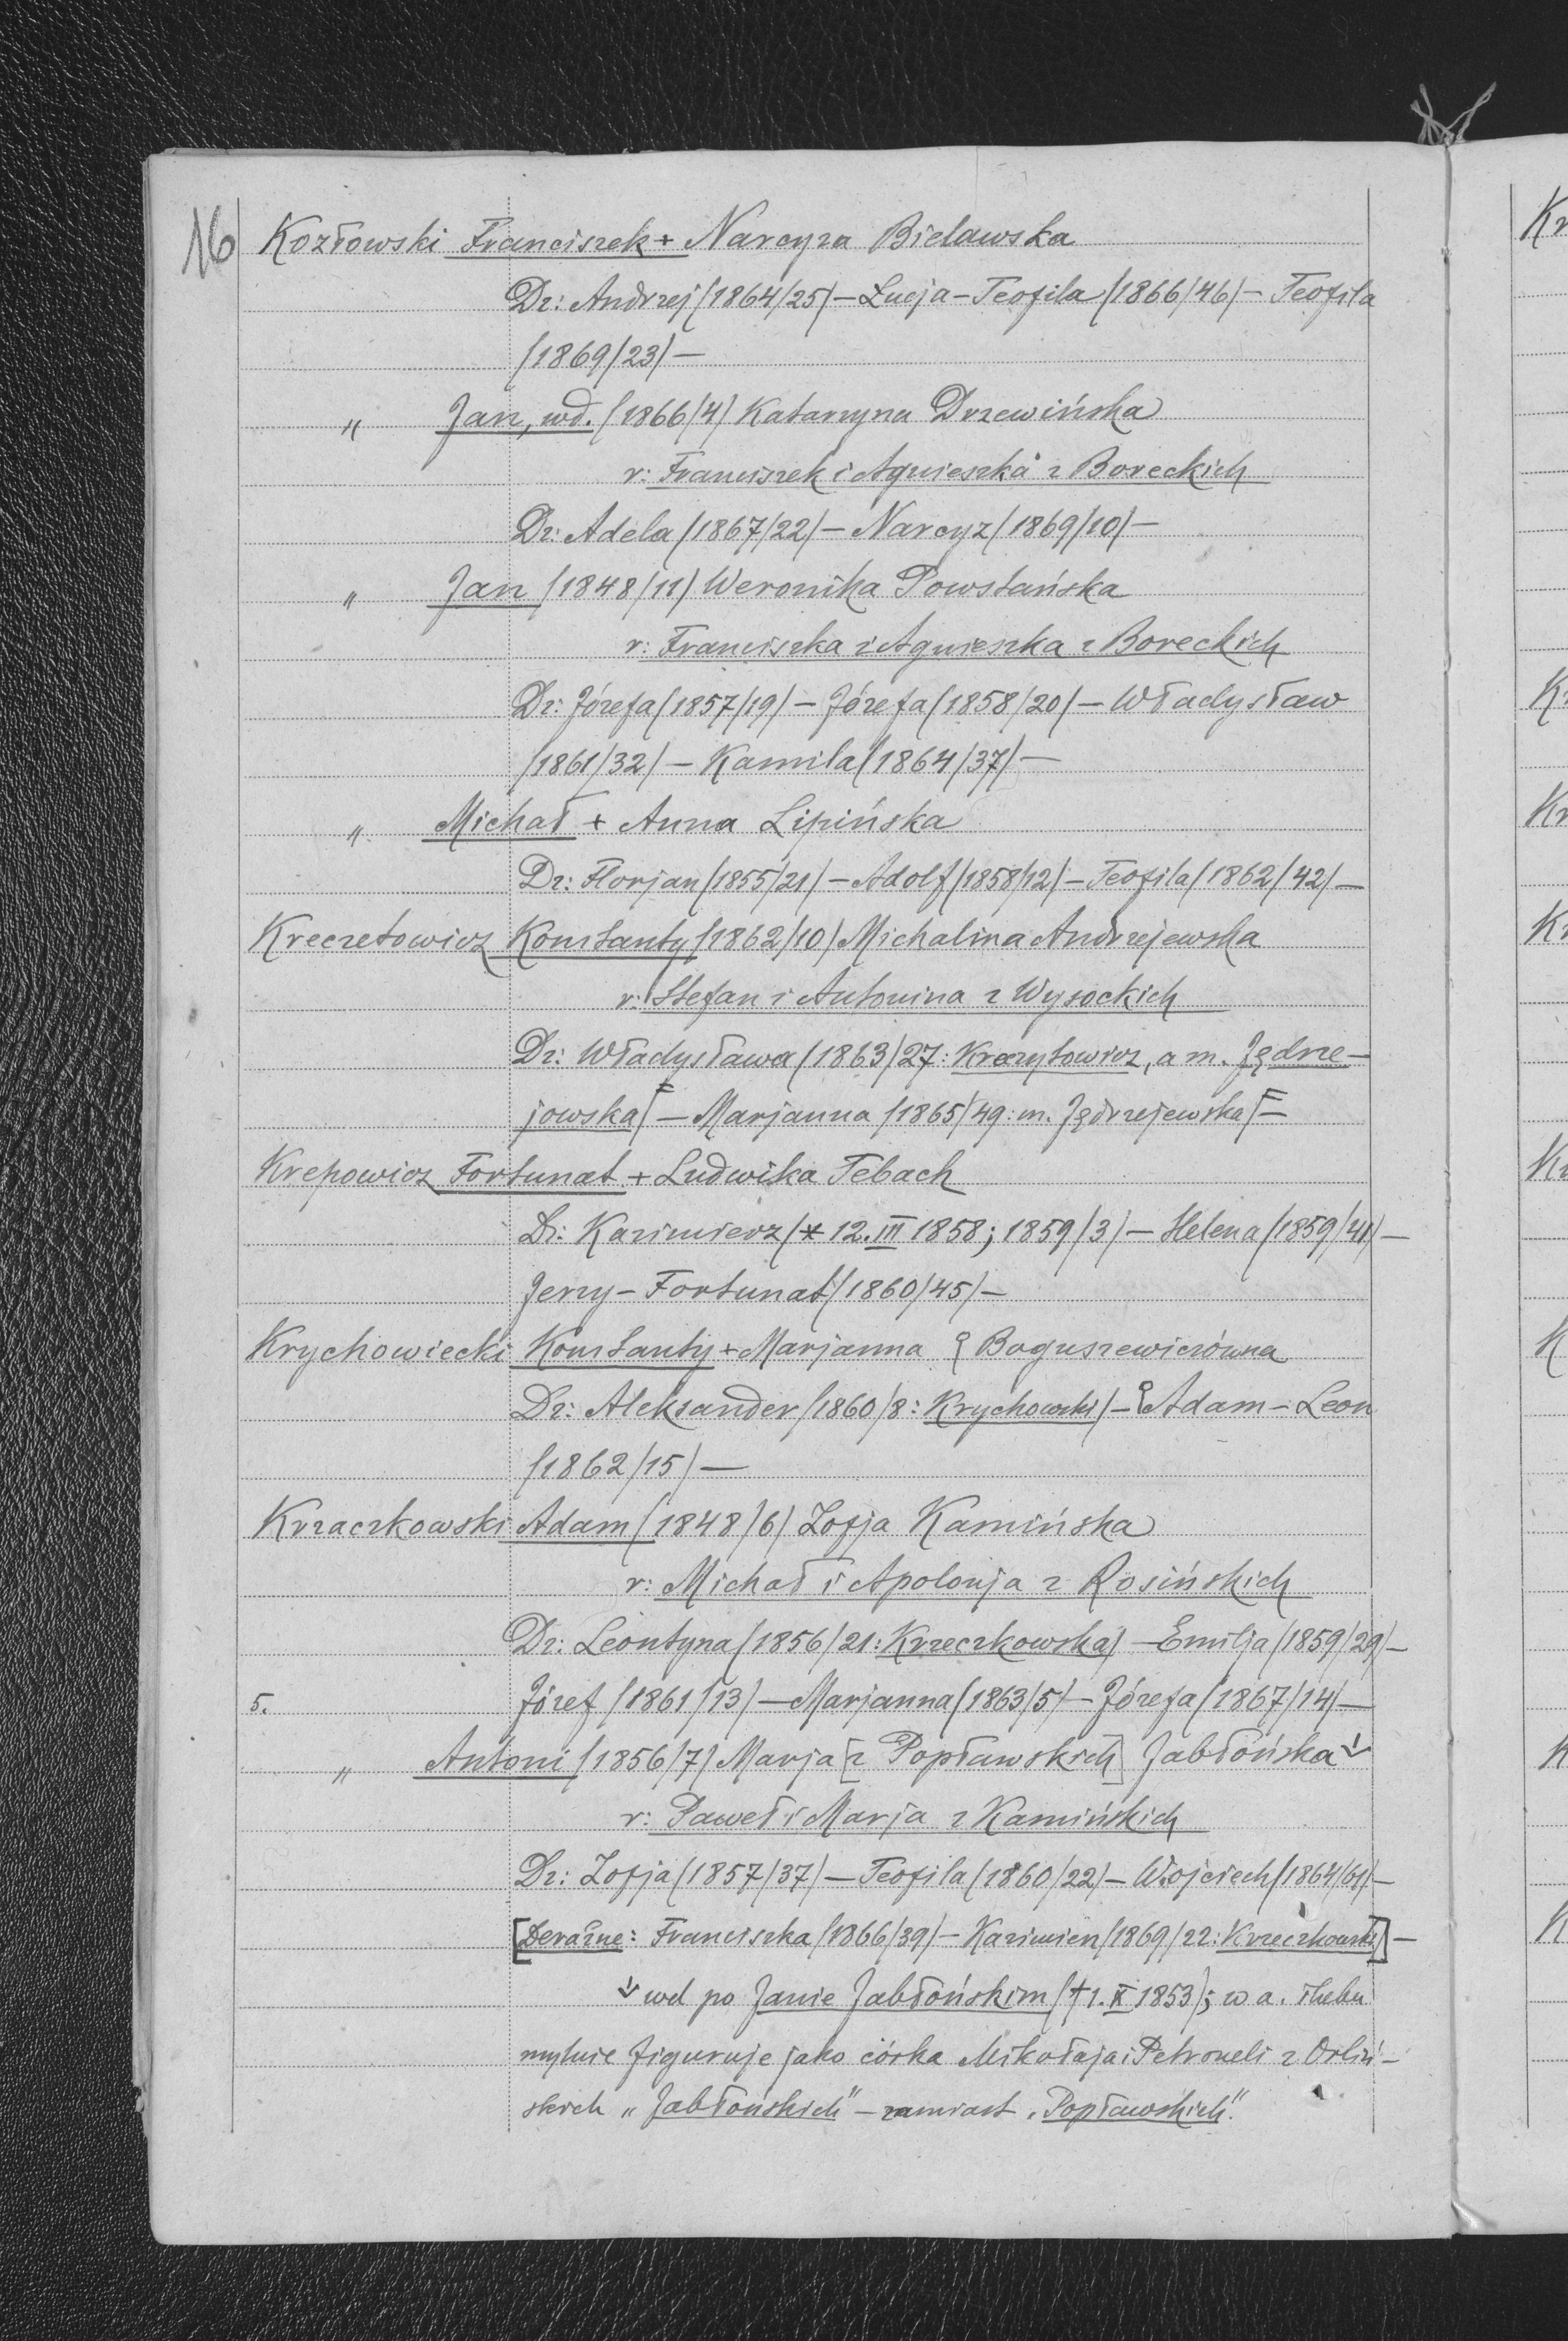 16 Kozłowski Franciszek + Narcyza Bielawska
Dz: Andrzej /1864/25/ – Łucja – Teofila /1866/46/ – Teofila
/1869/23/ –
„ Jan, wd. /1866/4/ Katarzyna Drzewińska
r: Franciszek i Agnieszka z Boreckich
Dz: Adela /1867/22/ – Narcyz /1869/10/ –
„ Jan /1848/11/ Weronika Powstańska
r: Franciszka i Agnieszka z Boreckich
Dz: Józefa /1857/19/ – Józefa /1858/20/ – Władysław
/1861/32/ – Kamila /1864/37/ –
„ Michał + Anna Lipińska
Dz: Florjan /1855/21/ – Adolf /1858/12/ – Teofila /1862/42/ –
Kreczetowicz Konstanty /1862/10/ Michalina Andrzejewska
r: Stefan i Antonina z Wysockich
Dz: Władysława /1863/27: Kraczytowicz, a m. Jędrze–
jowska/ – Marjanna /1865/49: m. Jędrzejewska/ –
Krepowicz Fortunat + Ludwika Tebach
Dz: Kazimierz /* 12.III 1858; 1859/3/ – Helena /1859/41/ –
Jerzy – Fortunat /1860/45/ –
Krychowiecki Konstanty + Marjanna Boguszewiczówna
Dz: Aleksander /1860/8: Krychowski/ – Adam – Leon
/1862/15/ –
Krzaczkowski Adam /1848/6/ Zofja Kamińska
r: Michał i Apolonja z Rosińskich
Dz: Leontyna /1856/21: Krzeczkowska/ – Emilja /1859/29/ –
5. Józef /1861/13/ – Marjanna /1863/5/ – Józefa /1867/14/ –
„ Antoni /1856/7/ Marja [z Popławskich] Jabłońska
r: Paweł i Marja z Kamińskich
Dz: Zofja /1857/37/ – Teofila /1860/22/ – Wojciech /1864/61/ –
[Derażne: Franciszka /1866/39/ – Kazimierz /1869/22: Krzeczkowski] –
wd po Janie Jabłońskim /† 1.X 1853/; w a. ślubu
mylnie figuruje jako córka Mikołaja i Petroneli z Orliń–
skich „Jabłońskich" – zamiast „Popławskich".